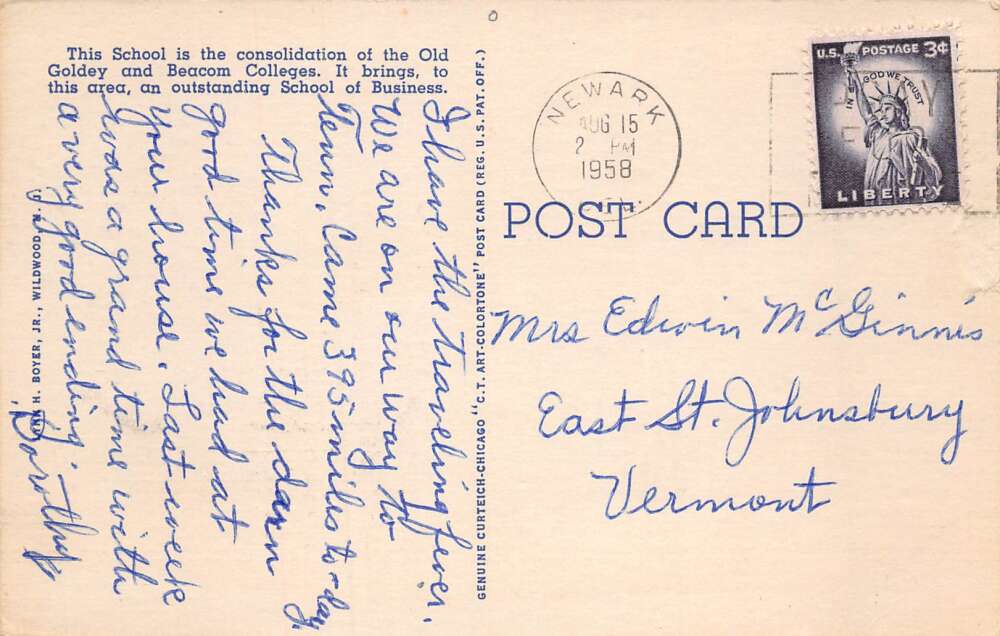 This School is the consolidation of the Old
Goldey and Beacom Colleges. It brings, to
this area, an outstanding School of Business.
I have the traveling fever.
We are on our way to
Tenn. Came 395 miles to-day.
Thanks for the darn
good time we had at
your house. Last week
was a grand time with
a very good ending.
Dorothy
H. BOYER, JR., WILDWOOD
GENUINE CURTEICH-CHICAGO "C.T. ART-COLORTONE" POST CARD (REG. U.S. PAT. OFF.)
NEWARK
AUG 15
2 PM
1958
DEL.
U.S. POSTAGE 3¢
IN GOD WE TRUST
LIBERTY
POST CARD
Mrs Edwin McGinnis
East St. Johnsbury
Vermont